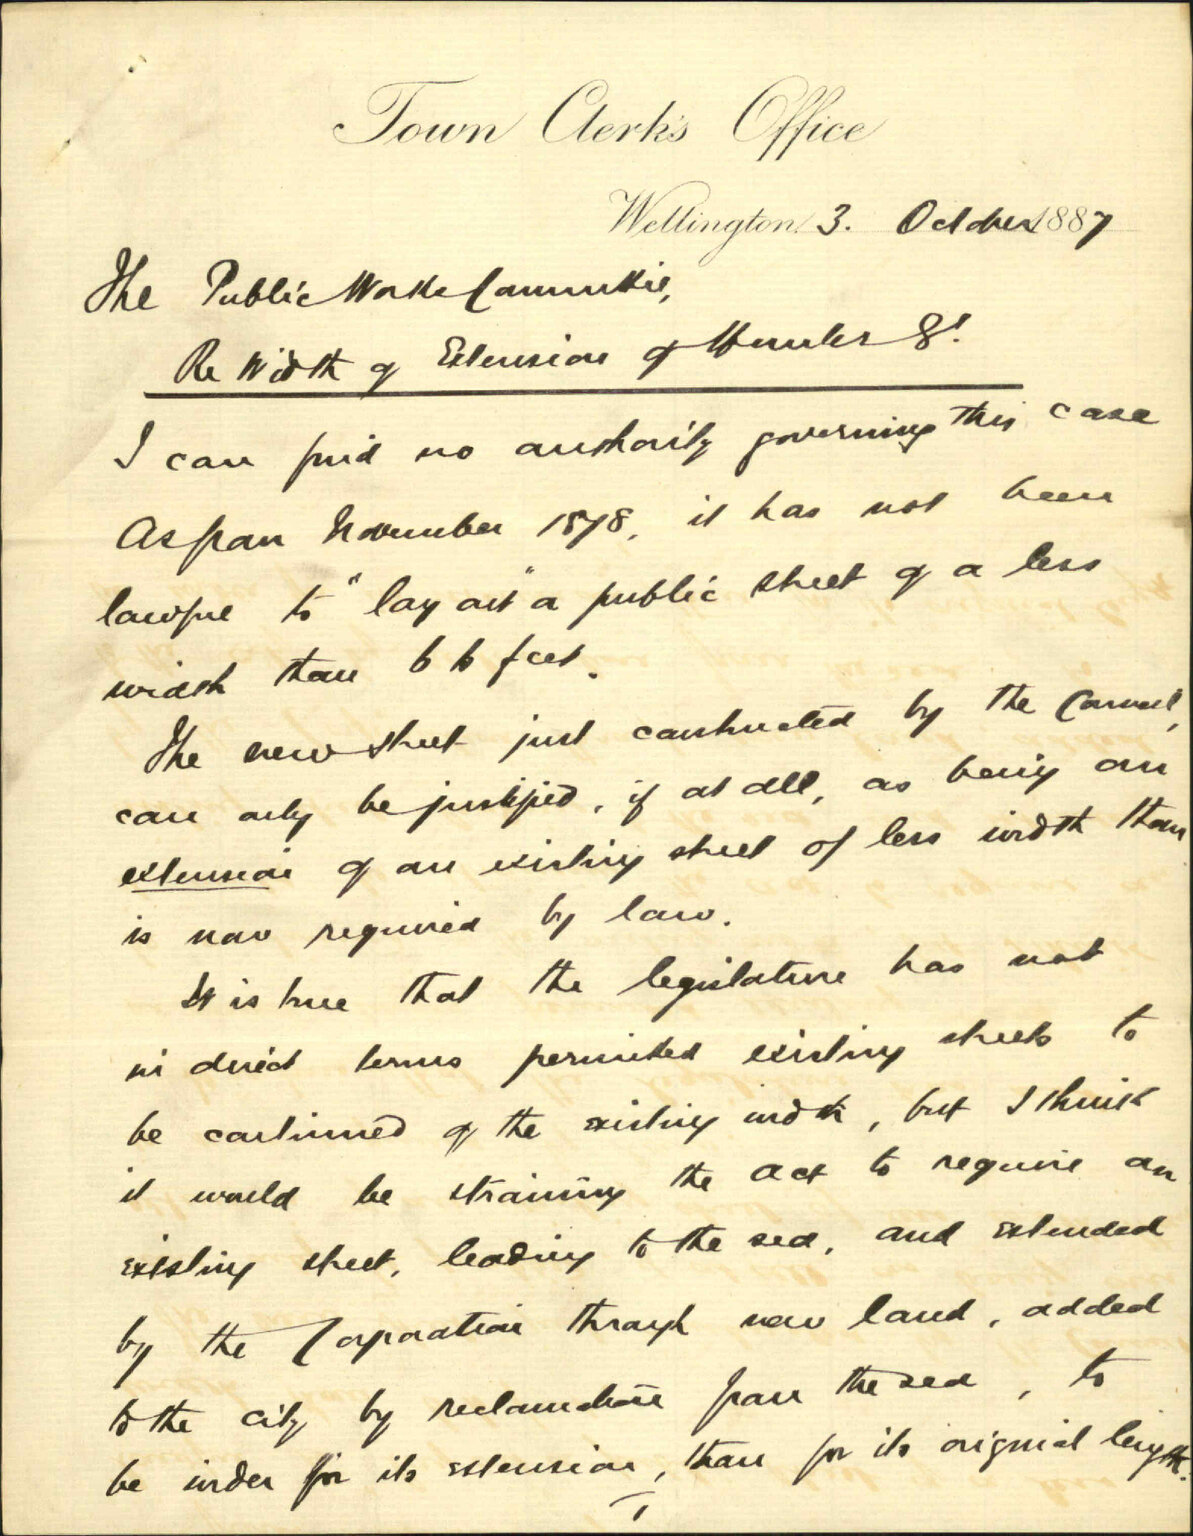 Town Clerk's Office
Wellington 3. October 1887
The Public Works Committee,
Re Width of Extension of Hunter St.
I can find no authority governing this case
As from November 1878, it has not been
lawful to "lay out" a public street of a less
width than 66 feet.
The new street just constructed by the Council,
can only be justified, if at all, as being an
extension of an existing street of less width than
is now required by law.
It is true that the legislature has not
in direct terms permitted existing streets to
be continued of the existing width, but I think
it would be straining the Act to require an
existing street, leading to the sea, and extended
by the Corporation through new land, added
to the city by reclamation from the sea, to
be wider for its extension, than for its original length.